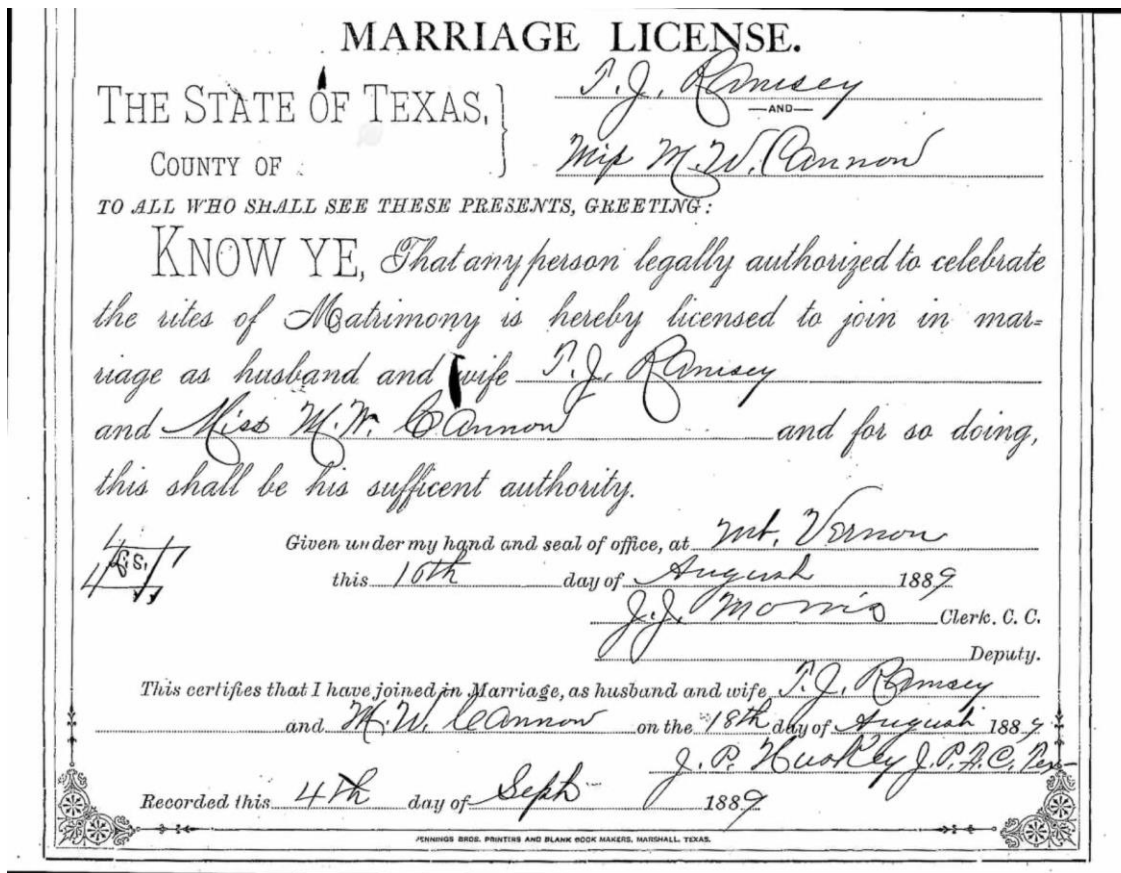 MARRIAGE LICENSE.
THE STATE OF TEXAS,
COUNTY OF
T. J. Ramsey
—AND—
Miss M. W. Cannon
TO ALL WHO SHALL SEE THESE PRESENTS, GREETING:
KNOW YE, That any person legally authorized to celebrate
the rites of Matrimony is hereby licensed to join in mar=
riage as husband and wife T. J. Ramsey
and Miss M. W. Cannon and for so doing,
this shall be his sufficent authority.
L. S.
Given under my hand and seal of office, at Mt. Vernon
this 16th day of August 1889
J. J. Morris Clerk. C. C.
Deputy.
This certifies that I have joined in Marriage, as husband and wife T. J. Ramsey
and M. W. Cannon on the 18th day of August 1889
J. P. Huskey J. P. F. C. Tex
Recorded this 4th day of Sept 1889
JENNINGS BROS. PRINTING AND BLANK BOOK MAKERS, MARSHALL, TEXAS.